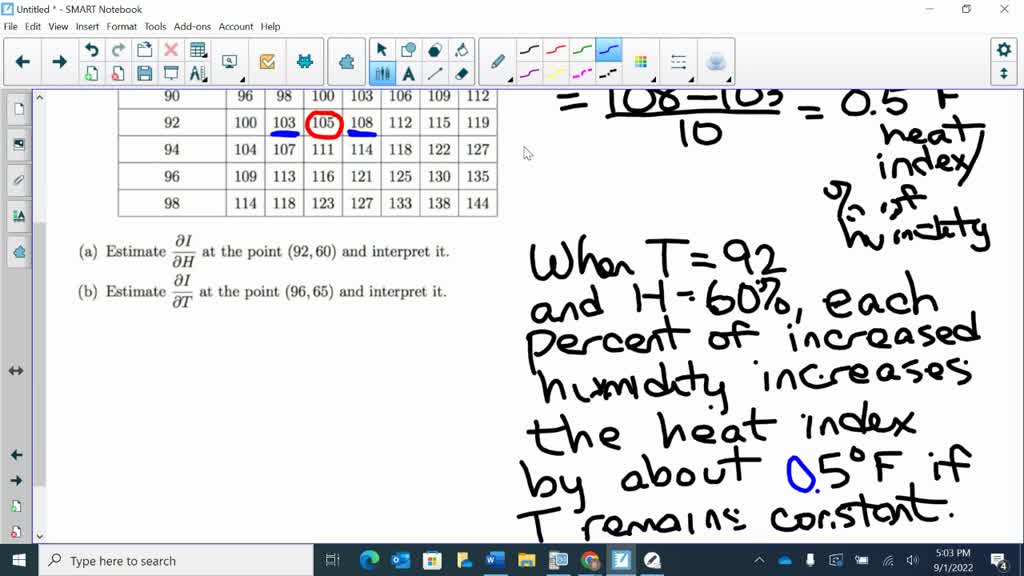 Untitled * - SMART Notebook
File Edit View Insert Format Tools Add-ons Account Help
90 96 98 100 103 106 109 112
92 100 103 105 108 112 115 119
94 104 107 111 114 118 122 127
96 109 113 116 121 125 130 135
98 114 118 123 127 133 138 144
(a) Estimate ∂I/∂H at the point (92, 60) and interpret it.
(b) Estimate ∂I/∂T at the point (96, 65) and interpret it.
= 108-103/10 = 0.5 °F
heat
index/
% of
humidity
When T=92
and H=60%, each
percent of increased
humidity increases
the heat index
by about 0.5°F if
T remains constant.
Type here to search
5:03 PM
9/1/2022
4